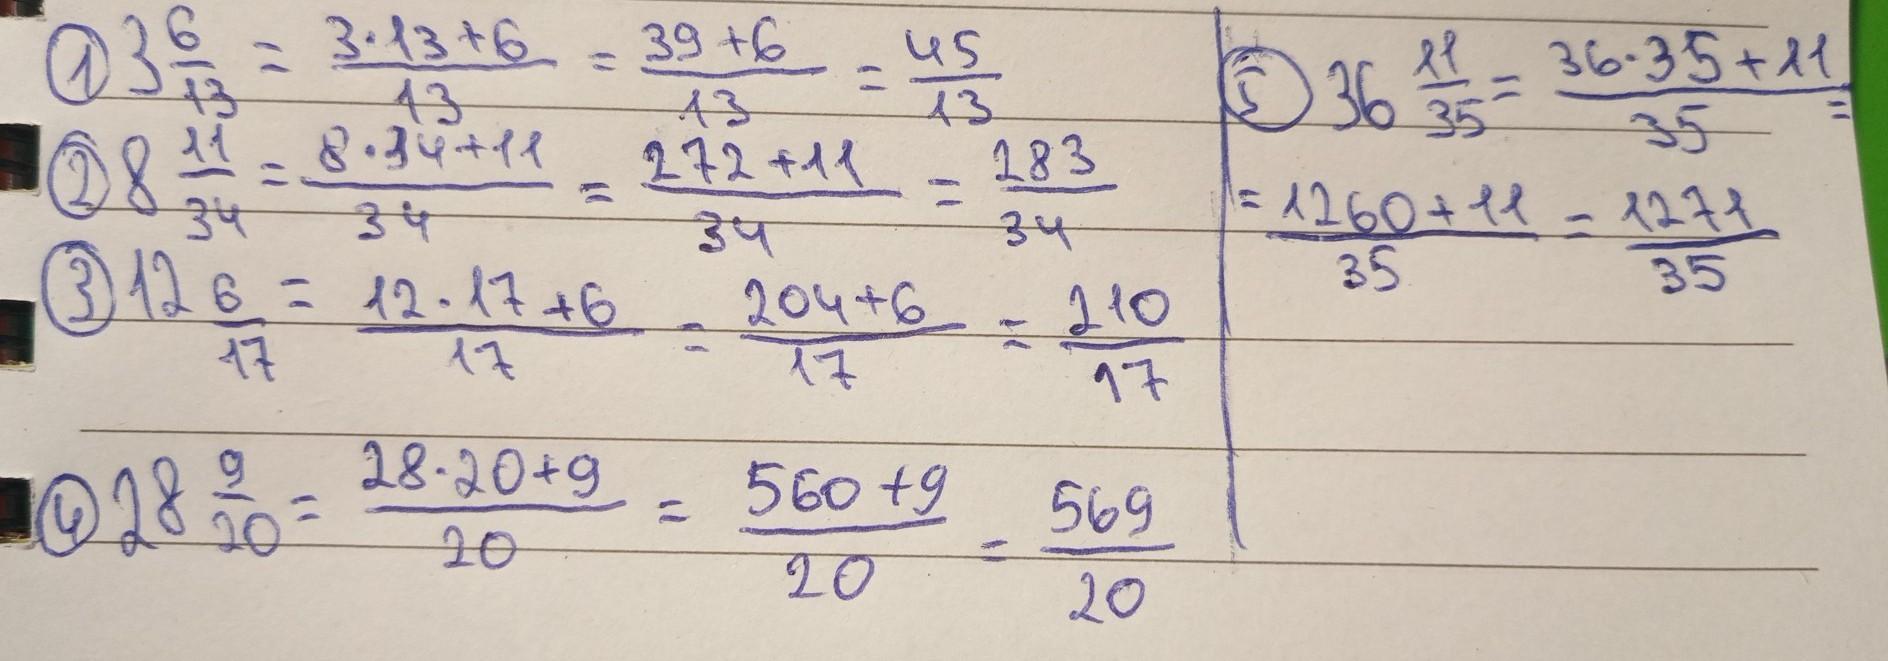 ① 3 6/13 = (3·13+6)/13 = (39+6)/13 = 45/13
② 8 11/34 = (8·34+11)/34 = (272+11)/34 = 283/34
③ 12 6/17 = (12·17+6)/17 = (204+6)/17 = 210/17
④ 28 9/20 = (28·20+9)/20 = (560+9)/20 = 569/20
⑤ 36 11/35 = (36·35+11)/35 =
= (1260+11)/35 = 1271/35